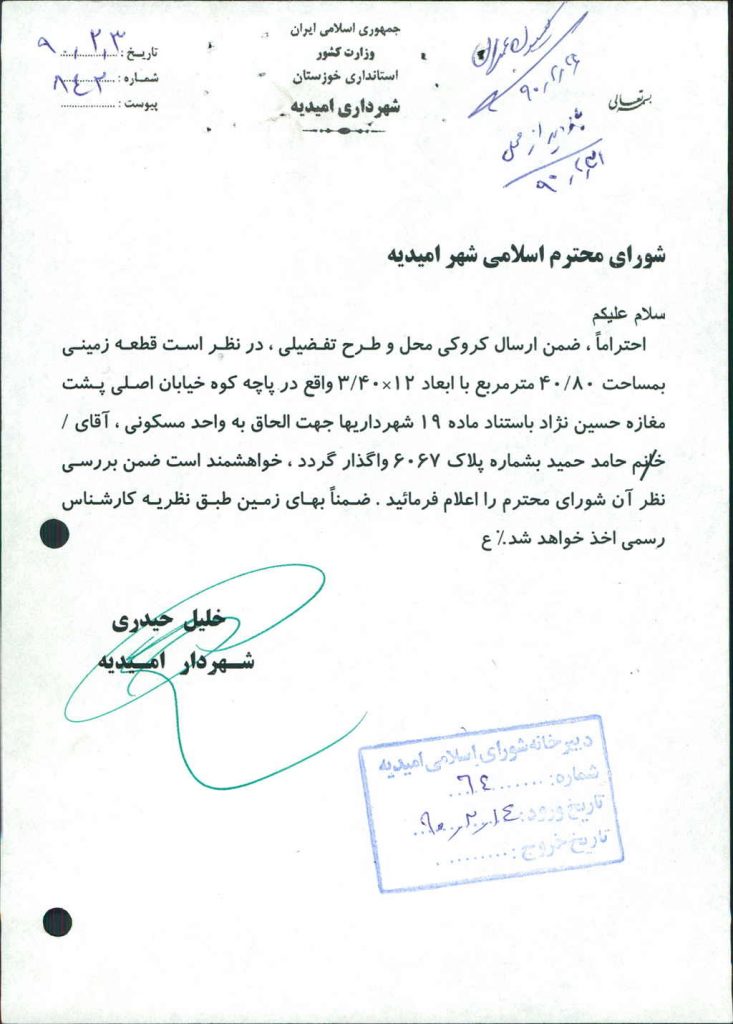 جمهوری اسلامی ایران
وزارت کشور
استانداری خوزستان
شهرداری امیدیه
تاریخ : ۹۰,۲,۳
شماره : ۸۴۲
پیوست :
بسمه تعالی
۹۰,۲,۲۶
بازدید از محل
۹۰,۲,۳۱
شورای محترم اسلامی شهر امیدیه
سلام علیکم
احتراماً ، ضمن ارسال کروکی محل و طرح تفضیلی ، در نظر است قطعه زمینی
بمساحت ۴۰/۸۰ مترمربع با ابعاد ۱۲×۳/۴۰ واقع در پاچه کوه خیابان اصلی پشت
مغازه حسین نژاد باستناد ماده ۱۹ شهرداریها جهت الحاق به واحد مسکونی ، آقای /
خانم حامد حمید بشماره پلاک ۶۰۶۷ واگذار گردد ، خواهشمند است ضمن بررسی
نظر آن شورای محترم را اعلام فرمائید . ضمناً بهای زمین طبق نظریه کارشناس
رسمی اخذ خواهد شد٪ ع
خلیل حیدری
شهردار امیدیه
دبیرخانه شورای اسلامی امیدیه
شماره: ۶۴
تاریخ ورود: ۹۰,۲,۱۴
تاریخ خروج :